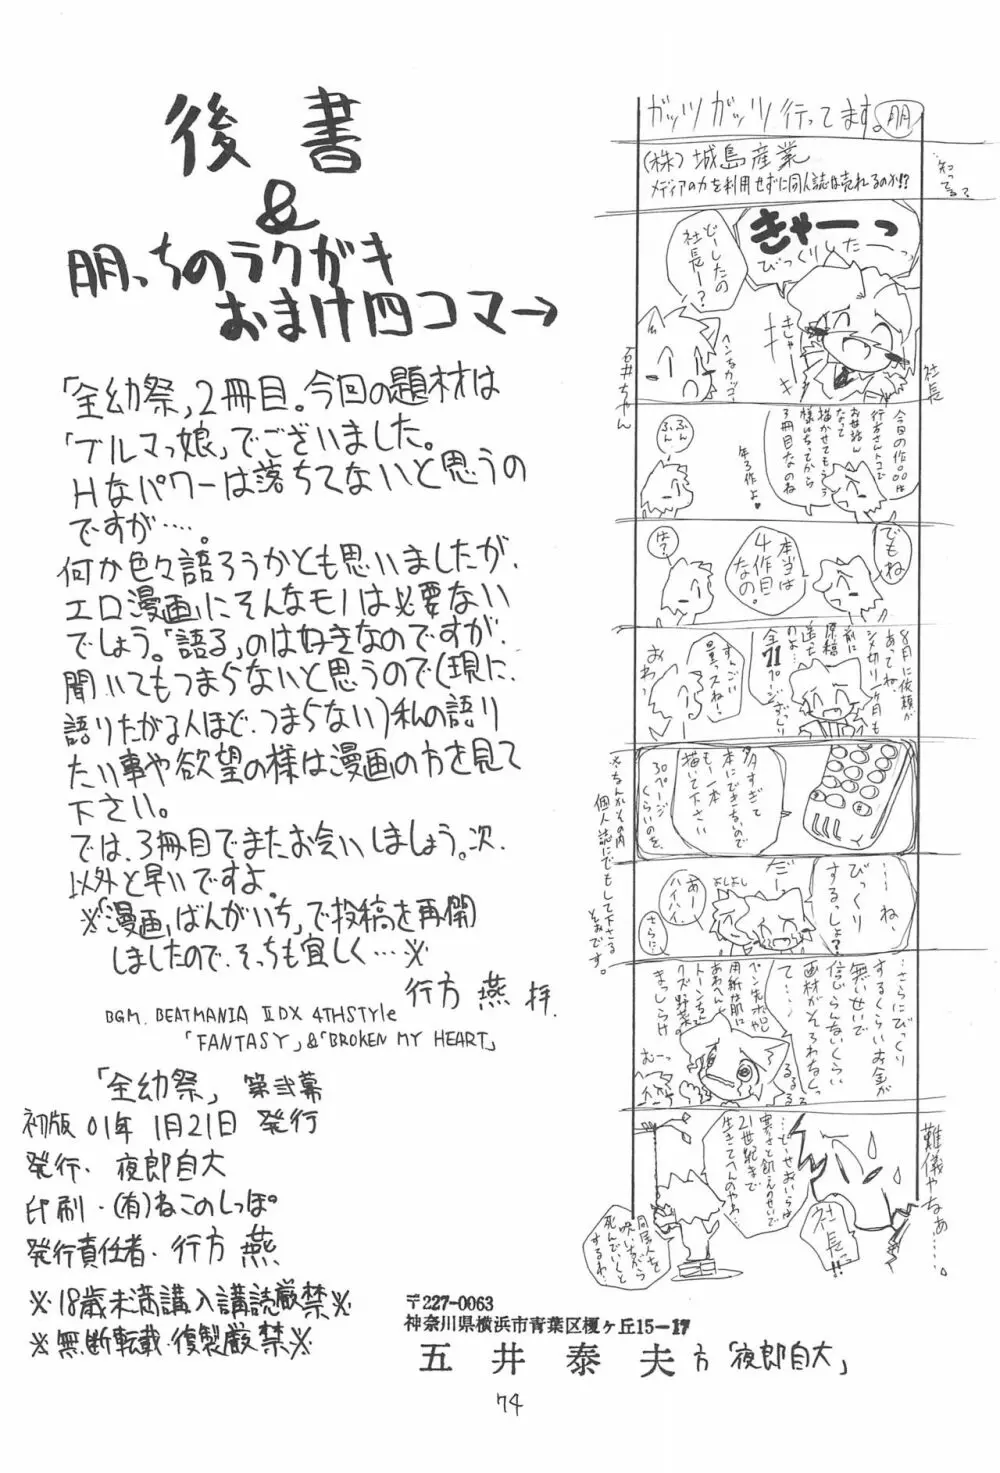 後書
&
朋っちのラクガキ
おまけ四コマ→
「全幼祭」2冊目。今回の題材は
「ブルマっ娘」でございました。
Hなパワーは落ちてないと思うの
ですが…。
何か色々語ろうかとも思いましたが、
エロ漫画にそんなモノは必要ない
でしょう。「語る」のは好きなのですが、
聞いてもつまらないと思うので(現に、
語りたがる人ほど、つまらない)私の語り
たい事や欲望の様は漫画の方を見て
下さい。
では、3冊目でまたお会いしましょう。次、
以外と早いですよ。
※「漫画ばんがいち」で投稿を再開
しましたので、そっちも宜しく…※
行方 燕 拝.
BGM. BEATMANIA ⅡDX 4THSTYle
「FANTASY」&「BROKEN MY HEART」
「全幼祭」 第弐幕
初版 01年 1月21日 発行
発行・夜郎自大
印刷・(有)ねこのしっぽ
発行責任者・行方 燕
※18歳未満購入購読厳禁※
※無断転載・複製厳禁※
ガッツガッツ行ってます。朋
(株)城島産業
メディアの力を利用せずに同人誌は売れるのか!?
知ってる?
きゃーっ
びっくりしたーっ
どーしたの
社長ー?
きしゃーき
ヘンなカッコ
社長
石井ちゃん
今日の作品は
行方さんトコで
お世話ん
なって
描かせてもらう
様いちってから
3冊目なのね
年3作よ♥
ふん
ふん
でもね
本当は
4作目
なの。
は?
8月に依頼が
あってね、
シメ切り一ヶ月も
前に
原稿
送った
のよ…
全71ページびっしり
すんごい
量っスねー
おわっ
多すぎて
本にできないので
もー一本
描いて下さい
30ページ
くらいのを、
※なんかその内
個人誌にでもして下さる
とおです。
…ね、
びっくり
するっしょ?
だー
よしよし
あー
ハイハイ
さらに
…さらにびっくり
するくらいお金が
無いせいで
信じらんないくらい
画材がそろわなくっ
て…
むーっ
難儀やなぁ……
社長っ!!
…どーせおいらは
寒さと飢えのせいで
21世紀まで
生きてへんのやわ…
同居人を
呪いながら
死んでいくと
するわ…
〒227-0063
神奈川県横浜市青葉区榎ヶ丘15-17
五井泰夫 方「夜郎自大」
74